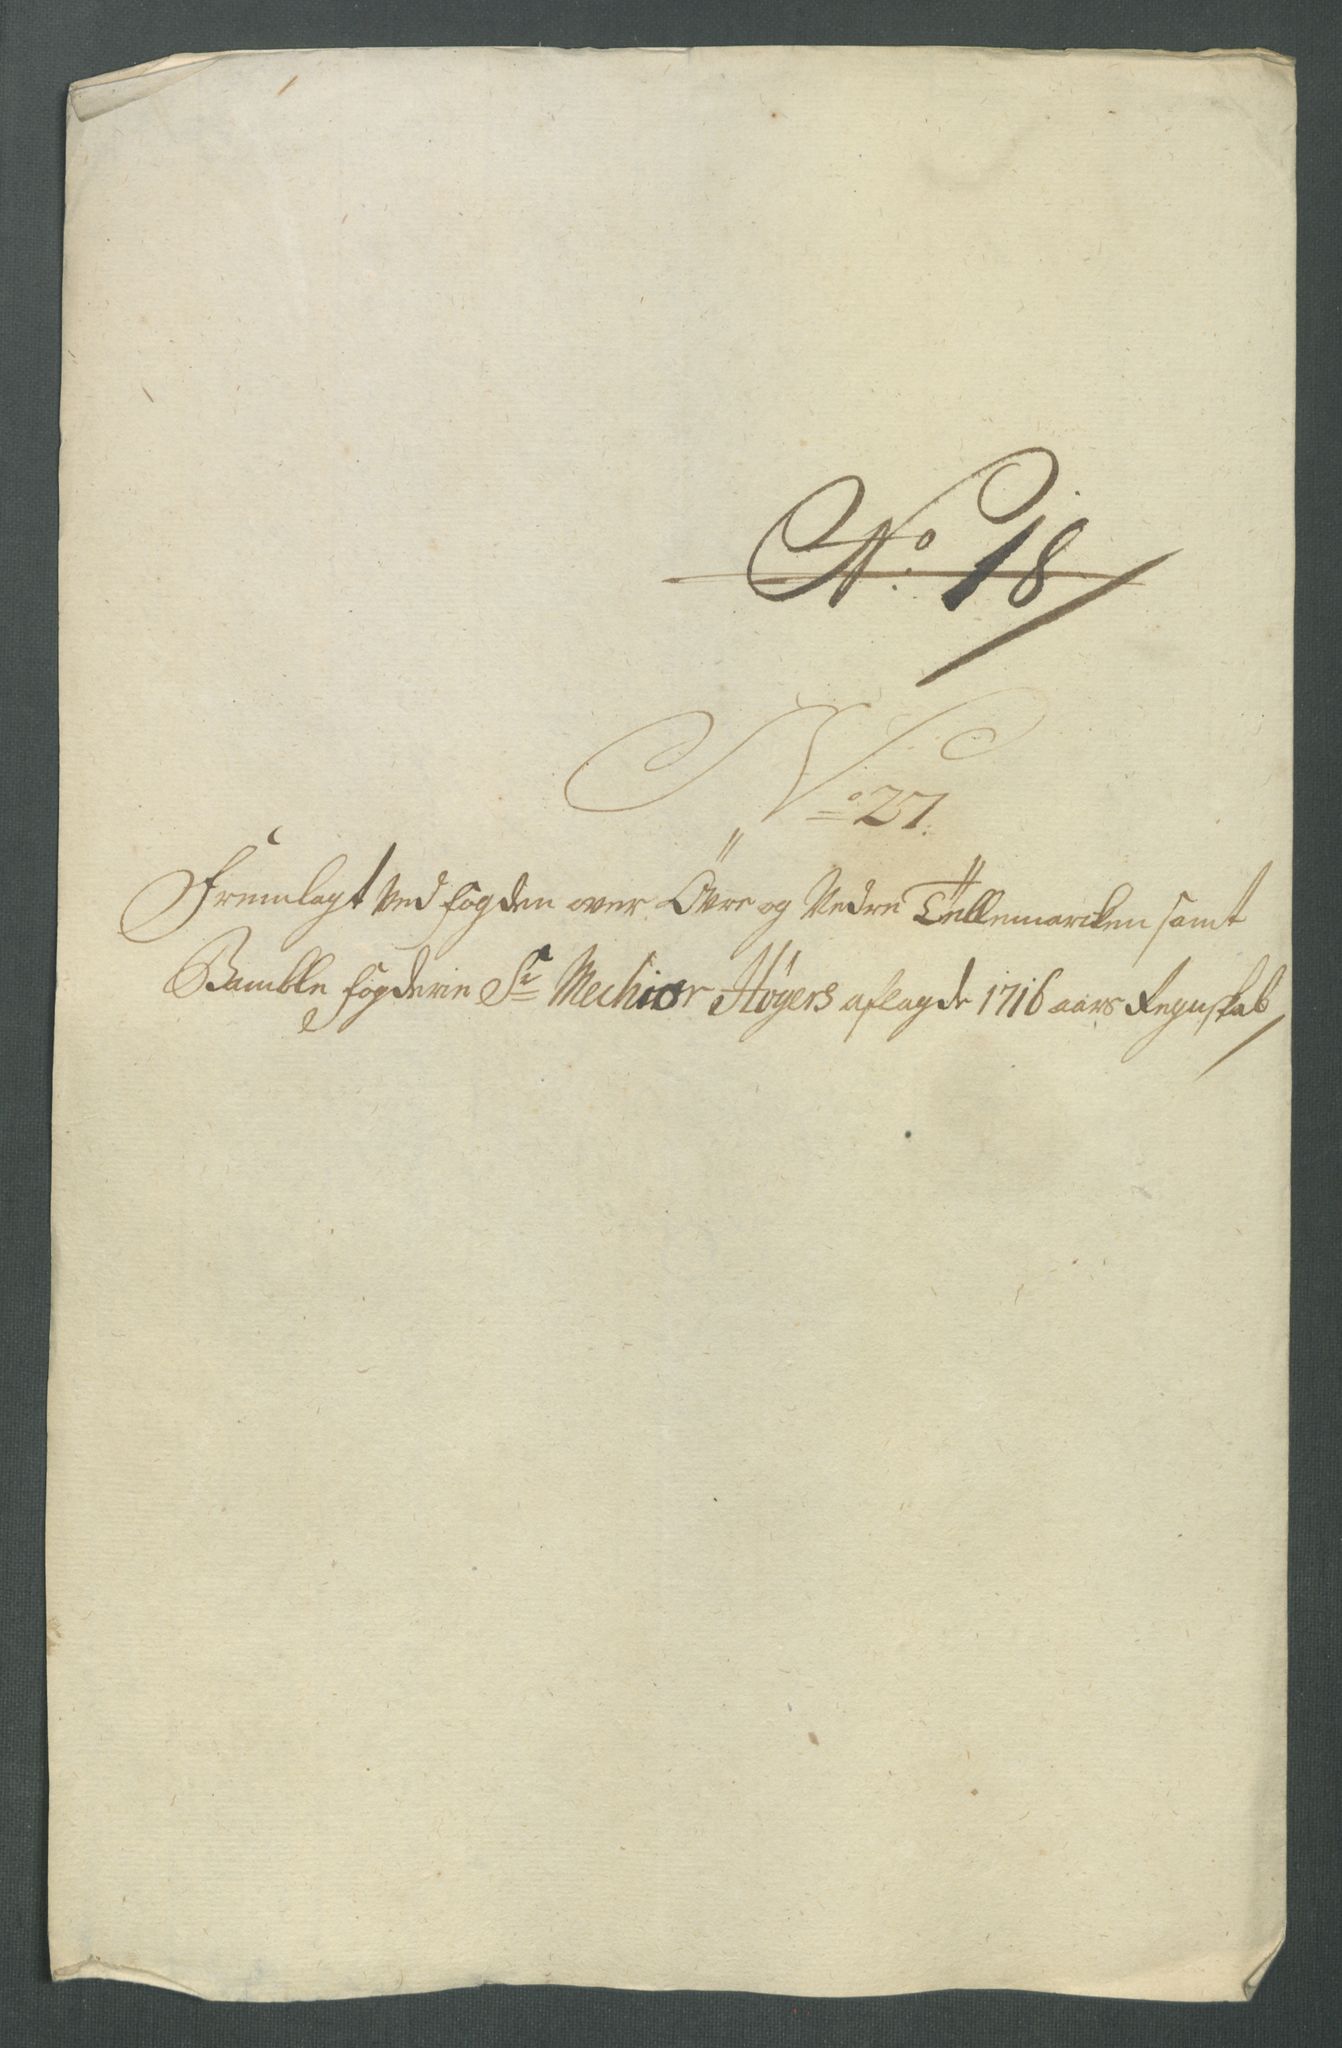 No. 18
No 27.
Fremlagt ved fogden over Övre og Nedre Tellemarcken samt
Bamble fogderie Sr Mechior Høyers aflagde 1716 aars Regnskab